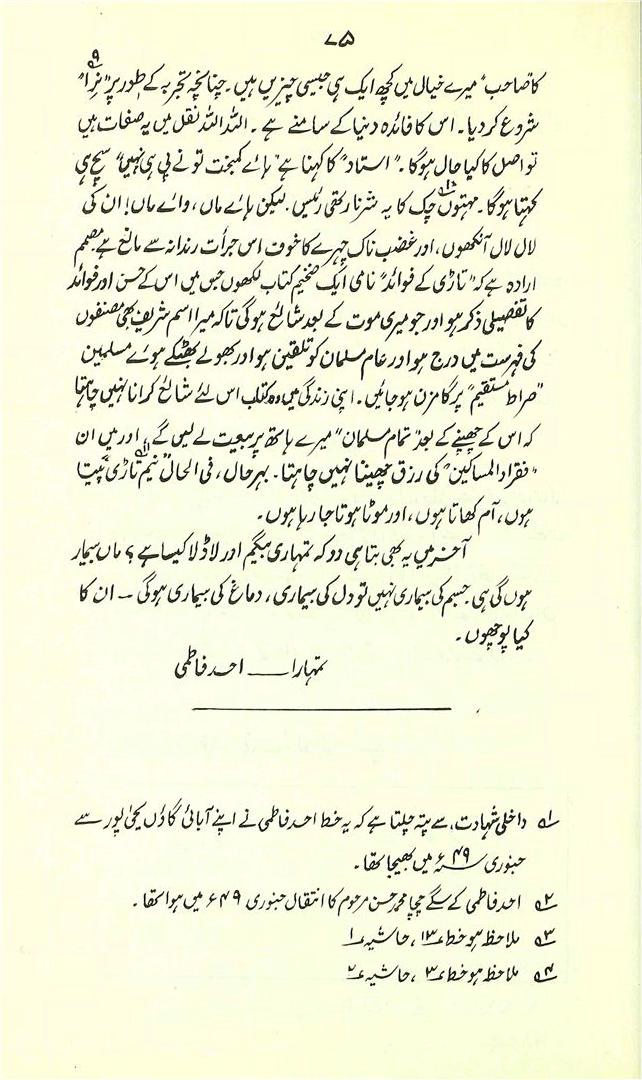 ۷۵
کا صاحب" میرے خیال میں کچھ ایک ہی جیسی چیزیں ہیں۔ چنانچہ تجربہ کے طور پر "نِرا"۹
شروع کر دیا۔ اس کا فائدہ دنیا کے سامنے ہے۔ اللہ اللہ نقل میں یہ صفات ہیں
تو اصل کا کیا حال ہوگا۔ "استاد" کا کہنا ہے "ہائے کمبخت تو نے پی ہی نہیں" سچ ہی
کہتا ہوگا۔ مہتوں۱۰ چک کا یہ شرنارتھی رئیس۔ لیکن ہائے ماں، وائے ماں! ان کی
لال لال آنکھوں، اور غضب ناک چہرے کا خوف اس جرأت رندانہ سے مانع ہے۔ مصمم
ارادہ ہے کہ "تاڑی کے فوائد" نامی ایک ضخیم کتاب لکھوں جس میں اس کے حسن اور فوائد
کا تفصیلی ذکر ہو اور جو میری موت کے بعد شائع ہوگی تاکہ میرا اسم شریف بھی مصنفوں
کی فہرست میں درج ہو اور عام مسلمان کو تلقین ہو اور بھولے بھٹکے ہوئے مسلمین
"صراط مستقیم" پر گامزن ہو جائیں۔ اپنی زندگی میں وہ کتاب اس لئے شائع کرانا نہیں چاہتا
کہ اس کے چھپنے کے بعد "تمام مسلمان" میرے ہاتھ پر بیعت لے لیں گے، اور میں ان
"فقراء المساکین" کی رزق چھیننا نہیں چاہتا۔ بہرحال، فی الحال نیم۱۱ تاڑی پیتا
ہوں، آم کھاتا ہوں، اور موٹا ہوتا جا رہا ہوں۔
آخر میں یہ بھی بتا ہی دو کہ تمہاری بیگم اور لاڈلا کیسا ہے؟ ماں بیمار
ہوں گی ہی۔ جسم کی بیماری نہیں تو دل کی بیماری، دماغ کی بیماری ہوگی — ان کا
کیا پوچھوں۔
تمہارا ـــــ احمد فاطمی
۱؎ داخلی شہادت، سے پتہ چلتا ہے کہ یہ خط احمد فاطمی نے اپنے آبائی گاؤں یحییٰ پور سے
جنوری ۴۹ء میں بھیجا تھا۔
۲؎ احمد فاطمی کے سگے چچا محمد حسن مرحوم کا انتقال جنوری ۴۹ء میں ہوا تھا۔
۳؎ ملاحظہ ہو خط ۱۳، حاشیہ ۱
۴؎ ملاحظہ ہو خط ۳، حاشیہ ۲